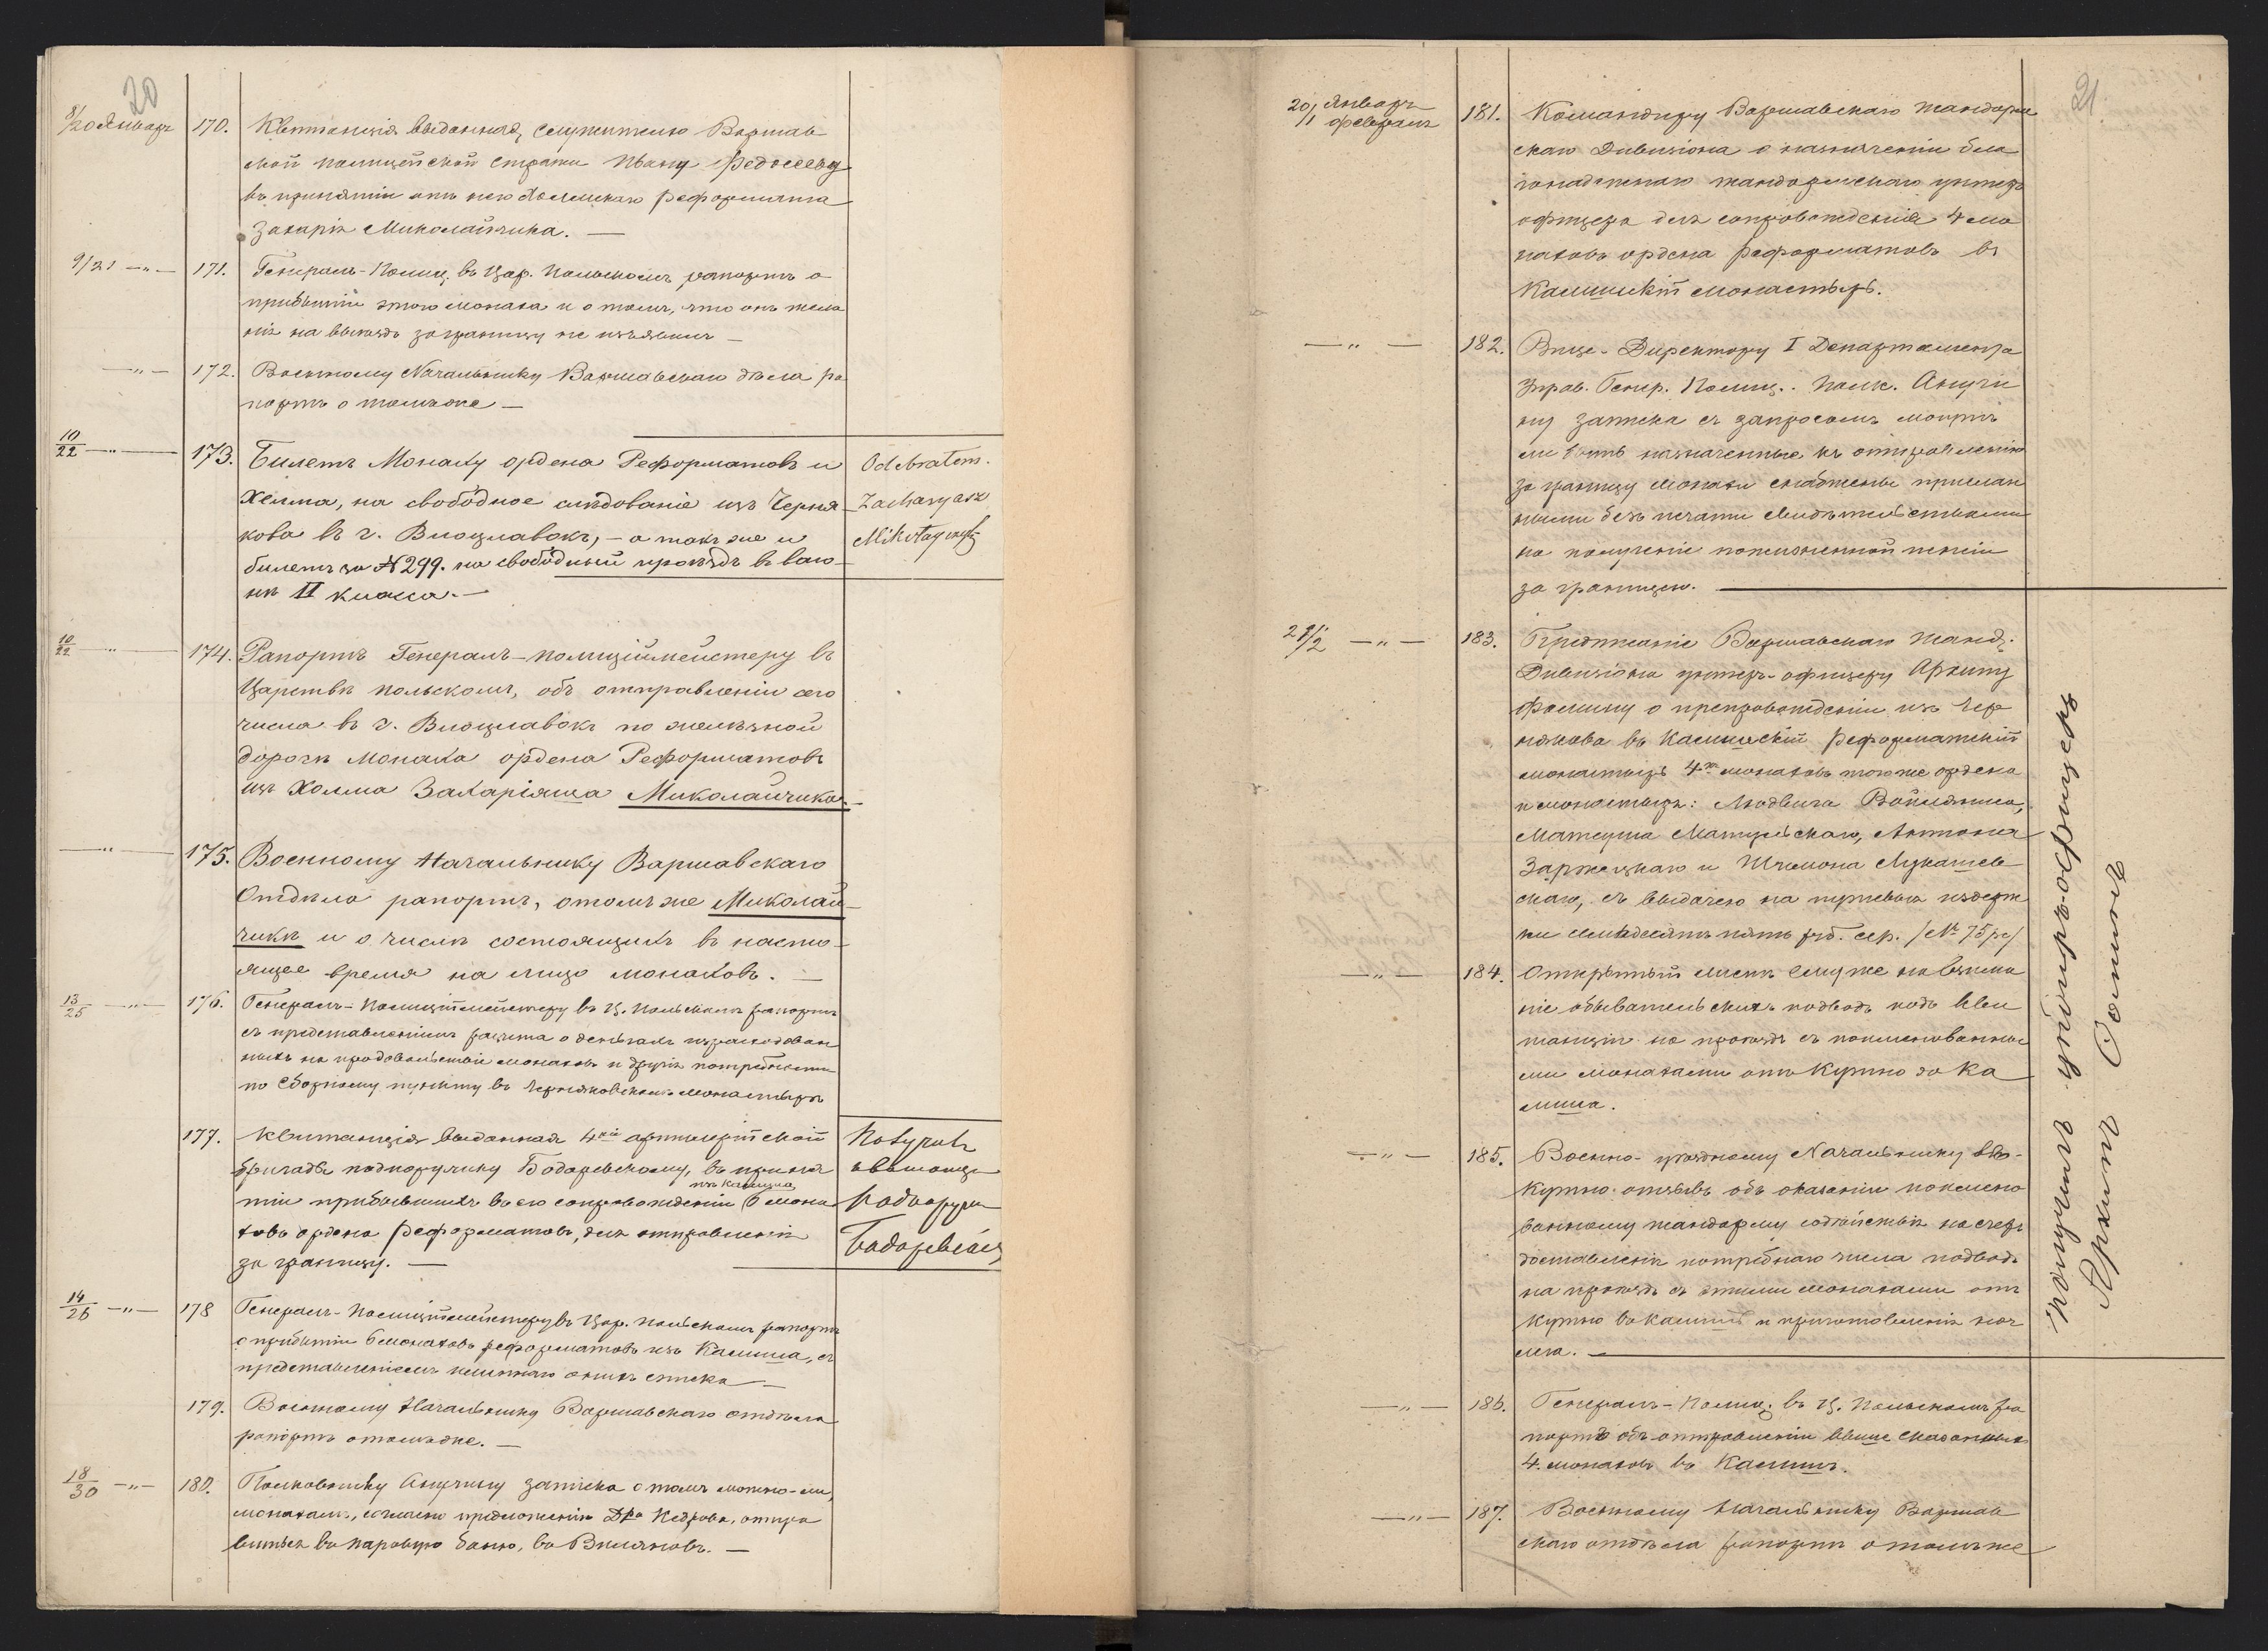 20
8/20 Январь 170. Квитанція выданная, служителю Варшав
ской полицейской стражи Ивану Федосееву
въ принятіи отъ него Холмскаго реформата
Захарія Миколайчика. —
9/21 —"— 171. Генералъ-Полиц. въ Цар. Польскомъ рапортъ о
прибытіи этого монаха и о томъ, что онъ жела
нія на выездъ заграницу не изъявилъ —
—"— 172. Военному Начальнику Варшавскаго отдѣла ра
портъ о томъ же —
10/22 —"— 173. Билетъ Монаху ордена Реформатовъ и
Хелма, на свободное слѣдованіе изъ Черня
кова въ г. Влоцлавокъ, — а также и
билетъ за № 299. на свободный проѣздъ въ ваго
нѣ II класса. —
Odebrałem.
Zacharyasz
Mikołayczyk
10/22 —"— 174. Рапортъ Генералъ-полиціймейстеру въ
Царствѣ польскомъ, объ отправленіи сего
числа въ г. Влоцлавокъ по желѣзной
дорогѣ Монаха ордена Реформатовъ
изъ Холма Захаріяша Миколайчика. —
—"— 175. Военному Начальнику Варшавскаго
Отдѣла рапортъ, о томъ же Миколай
чикѣ и о числѣ состоящихъ въ насто-
ящее время на лицо монаховъ. —
13/25 —"— 176. Генералъ-Полиціймейстеру въ Ц. Польскомъ рапортъ
съ представленіемъ расчета о деньгахъ израсходован
ныхъ на продовольствіе монаховъ и другія потребности
по Сборному пункту въ Черняковскомъ монастырѣ
177. Квитанція выданная 4ой артиллерійской
бригады подпоручику Бодаревскому, въ приня
тіи прибывшихъ въ его сопровожденіи изъ Калиша 6 мона
ховъ ордена реформатовъ, для отправленія
за границу. —
Получилъ
квитанцію
Подпоручи
Бодаревскій
14/26 —"— 178 Генералъ-Полиціймейстеру въ Цар. Польскомъ рапортъ
о прибытіи 6 монаховъ реформатовъ изъ Калиша, съ
представленіемъ имяннаго онымъ списка —
179. Военному Начальнику Варшавскаго отдѣла
рапортъ о томъ же. —
18/30 —"— 180. Полковнику Анучину записка о томъ можно-ли,
монахамъ, согласно предложенію Дра Кедрова, отпра
виться въ паровую баню, въ Вилановъ. —
21.
20/1 Январь
Февраль 181. Командиру Варшавскаго жандарм
скаго Дивизіона о назначеніи бла
гонадежнаго жандармскаго унтеръ
офицера для сопровожденія 4 мо
наховъ ордена реформатовъ въ
Калишскій монастырь.
—"— 182. Вице-Директору I Департамента
Управ. Генер. Полиц. Полк. Анучи
ну записка съ запросомъ могутъ
ли быть назначенные къ отправленію
за границу монахи снабжены прислан
ными безъ печати свидѣтельствами
на полученіе пожизненной пенсіи
за границею. —
21/2 —"— 183. Предписаніе Варшавскаго Жанд.
Дивизіона унтеръ-офицеру Архипу
Фомину о препровожденіи изъ Чер
някова въ Калишскій реформатскій
монастырь 4хъ монаховъ того же ордена
и монастыря:
Матеуша Антонія
Заржецкаго и Шимона Лукашев
скаго, съ выдачею на путевыя издерж
ки семьдесятъ пять руб. сер. /№ 75 р/
—"— 184. Открытый листъ ему же на взима
ніе обывательскихъ подводъ подъ кви
танціи на проѣздъ съ поименованны
ми монахами отъ Кутно до Ка
лиша.
—"— 185. Военно-уѣздному Начальнику въ
Кутно отзывъ объ оказаніи поимено
ванному жандарму содѣйствія на счетъ
доставленія потребнаго числа подводъ
на проѣздъ съ этими монахами отъ
Кутно въ Калишъ и приготовленія ноч
лега. —
Получилъ унтеръ-офицеръ
Архипъ Фоминъ
—"— 186. Генералъ-Полиц. въ Ц. Польскомъ ра
портъ объ отправленіи выше сказанныхъ
4. монаховъ въ Калишъ.
—"— 187. Военному Начальнику Варшав
скаго отдѣла рапортъ о томъ же